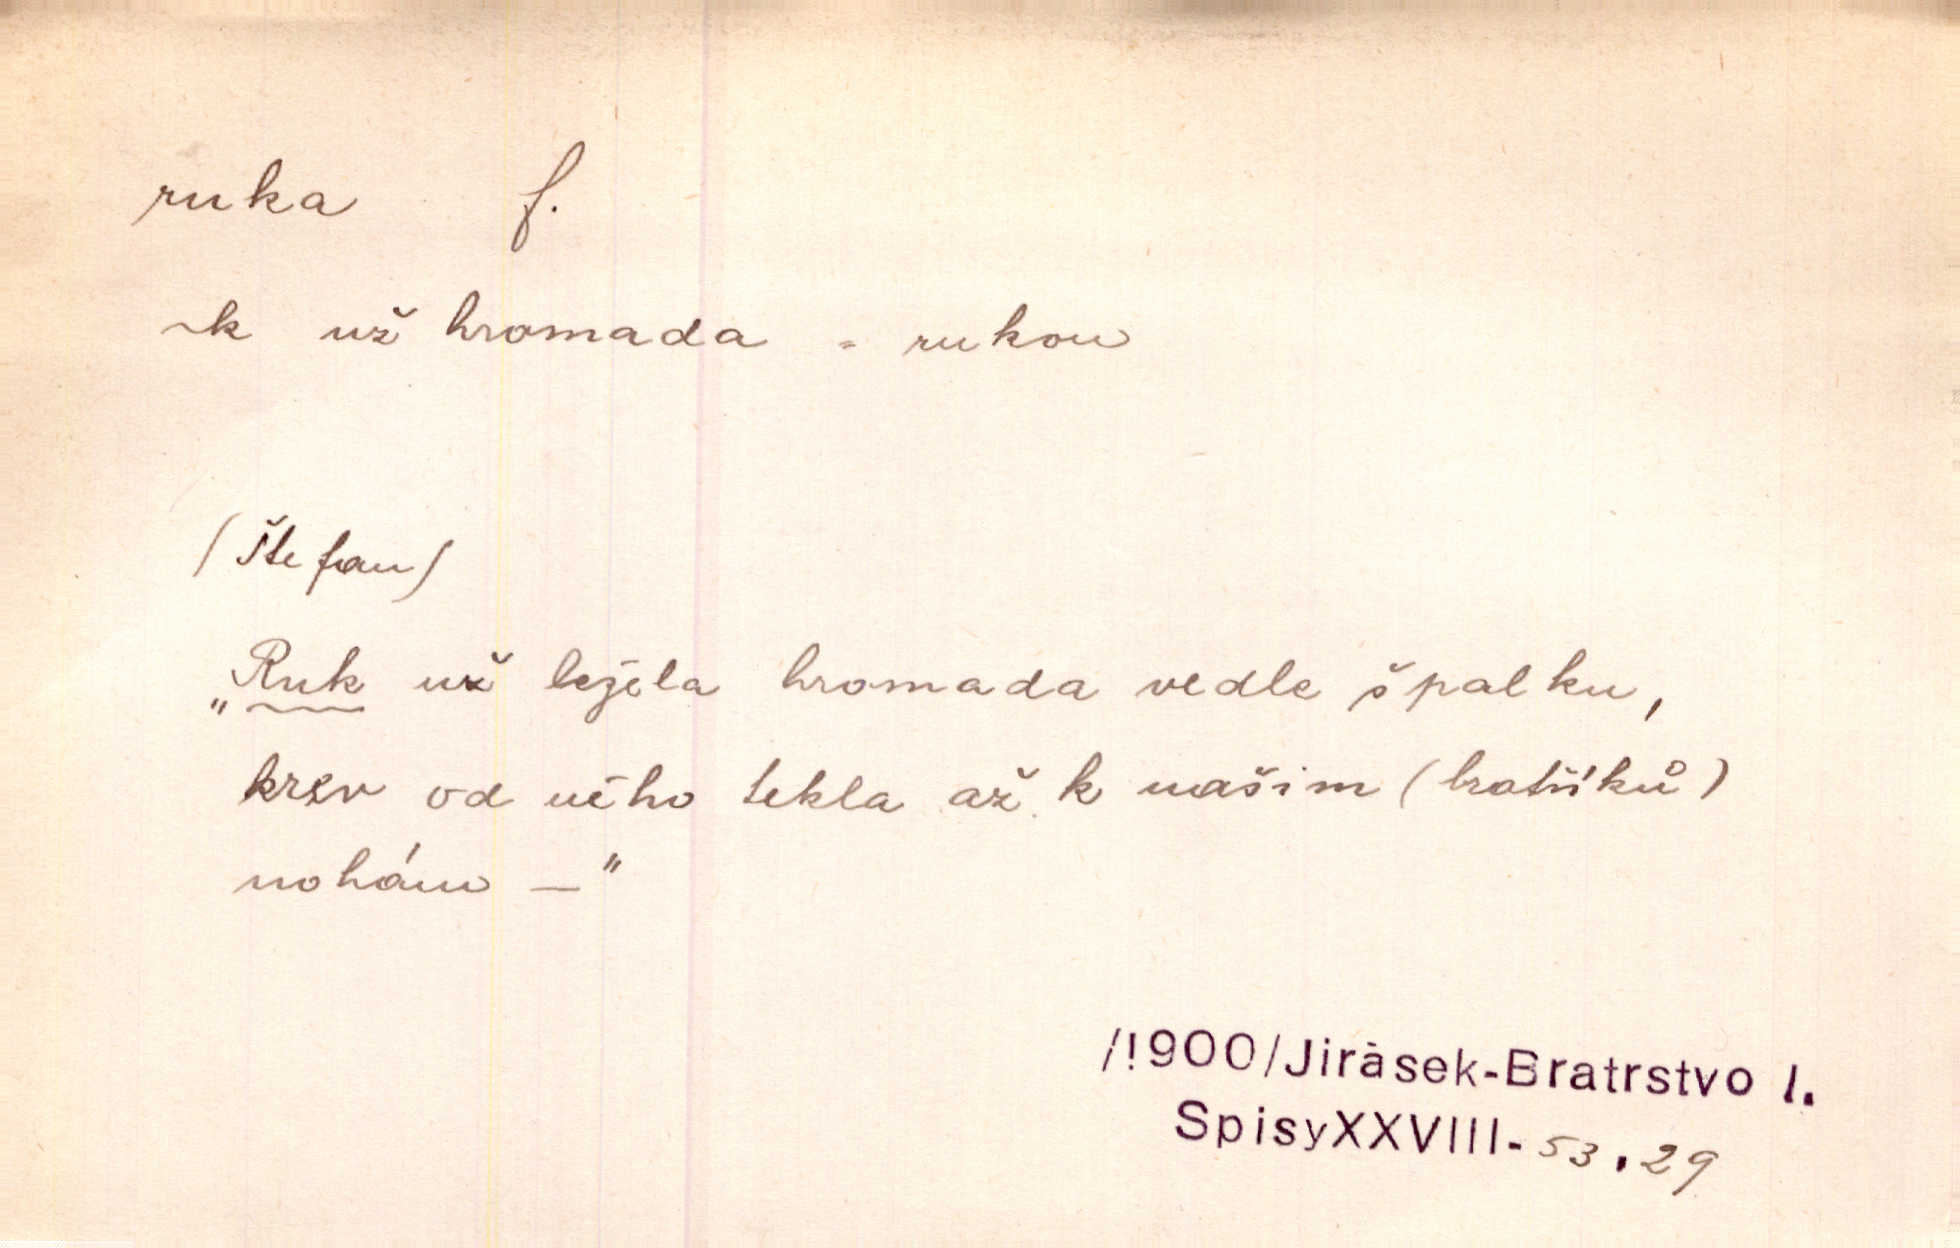 ruka f.
~k už hromada = rukou
(Štefan)
„Ruk už ležela hromada vedle špalku,
krev od něho tekla až k našim (bratříků)
nohám —"
/1900/Jirásek-Bratrstvo I.
SpisyXXVIII-53,29